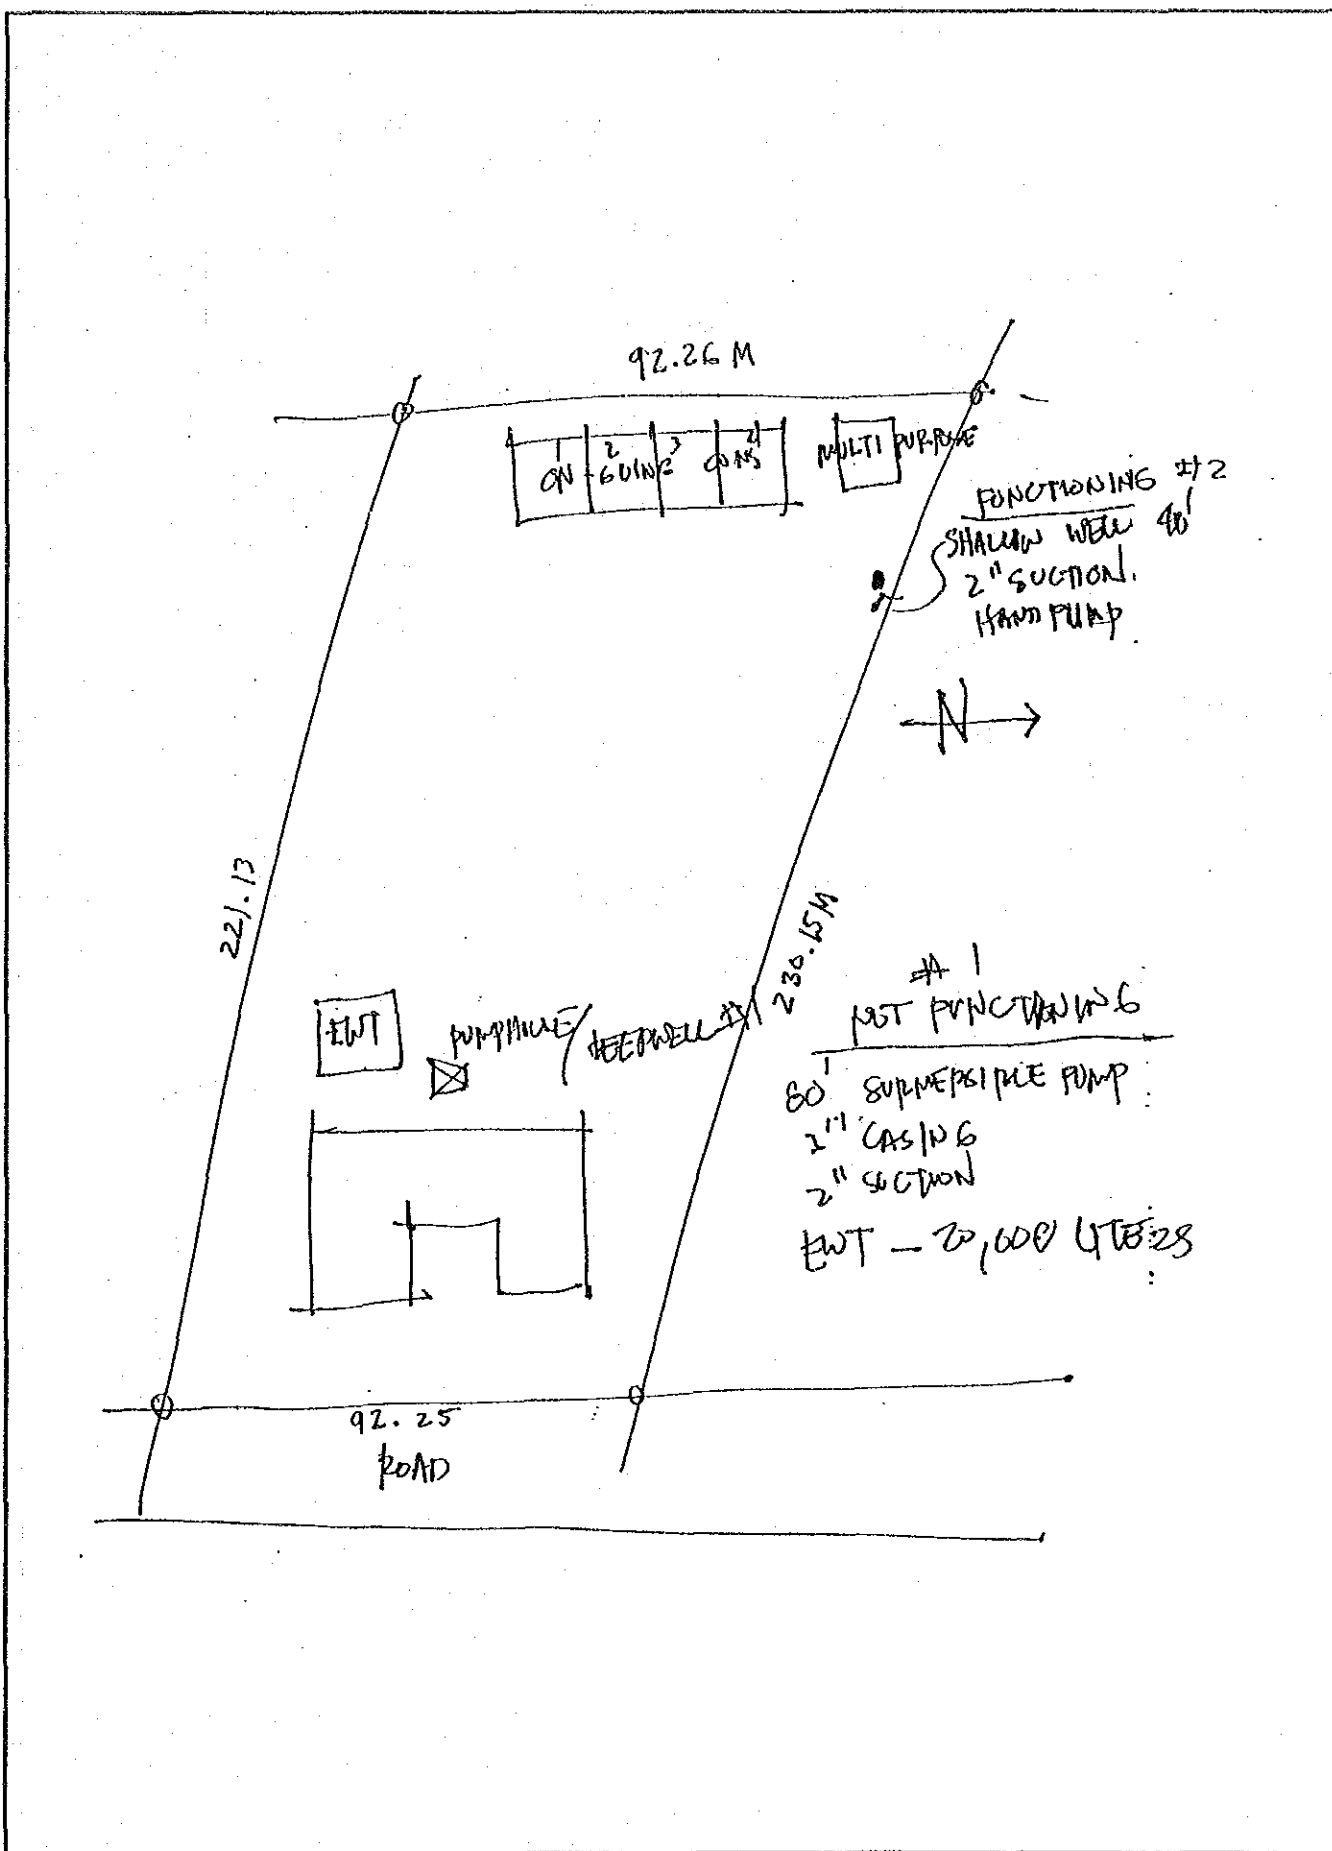 92.26 M
1 2 3 4
ON-GOING CONS
MULTI PURPOSE
FUNCTIONING #2
SHALLOW WELL 40'
2" SUCTION.
HAND PUMP
N
221.13
230.15M
EWT
PUMPHOUSE/
DEEPWELL #1
#1
NOT FUNCTIONING
SUBMERSIBLE PUMP
CASING
2" SUCTION
EWT - 20,000 LITERS
92.25
ROAD